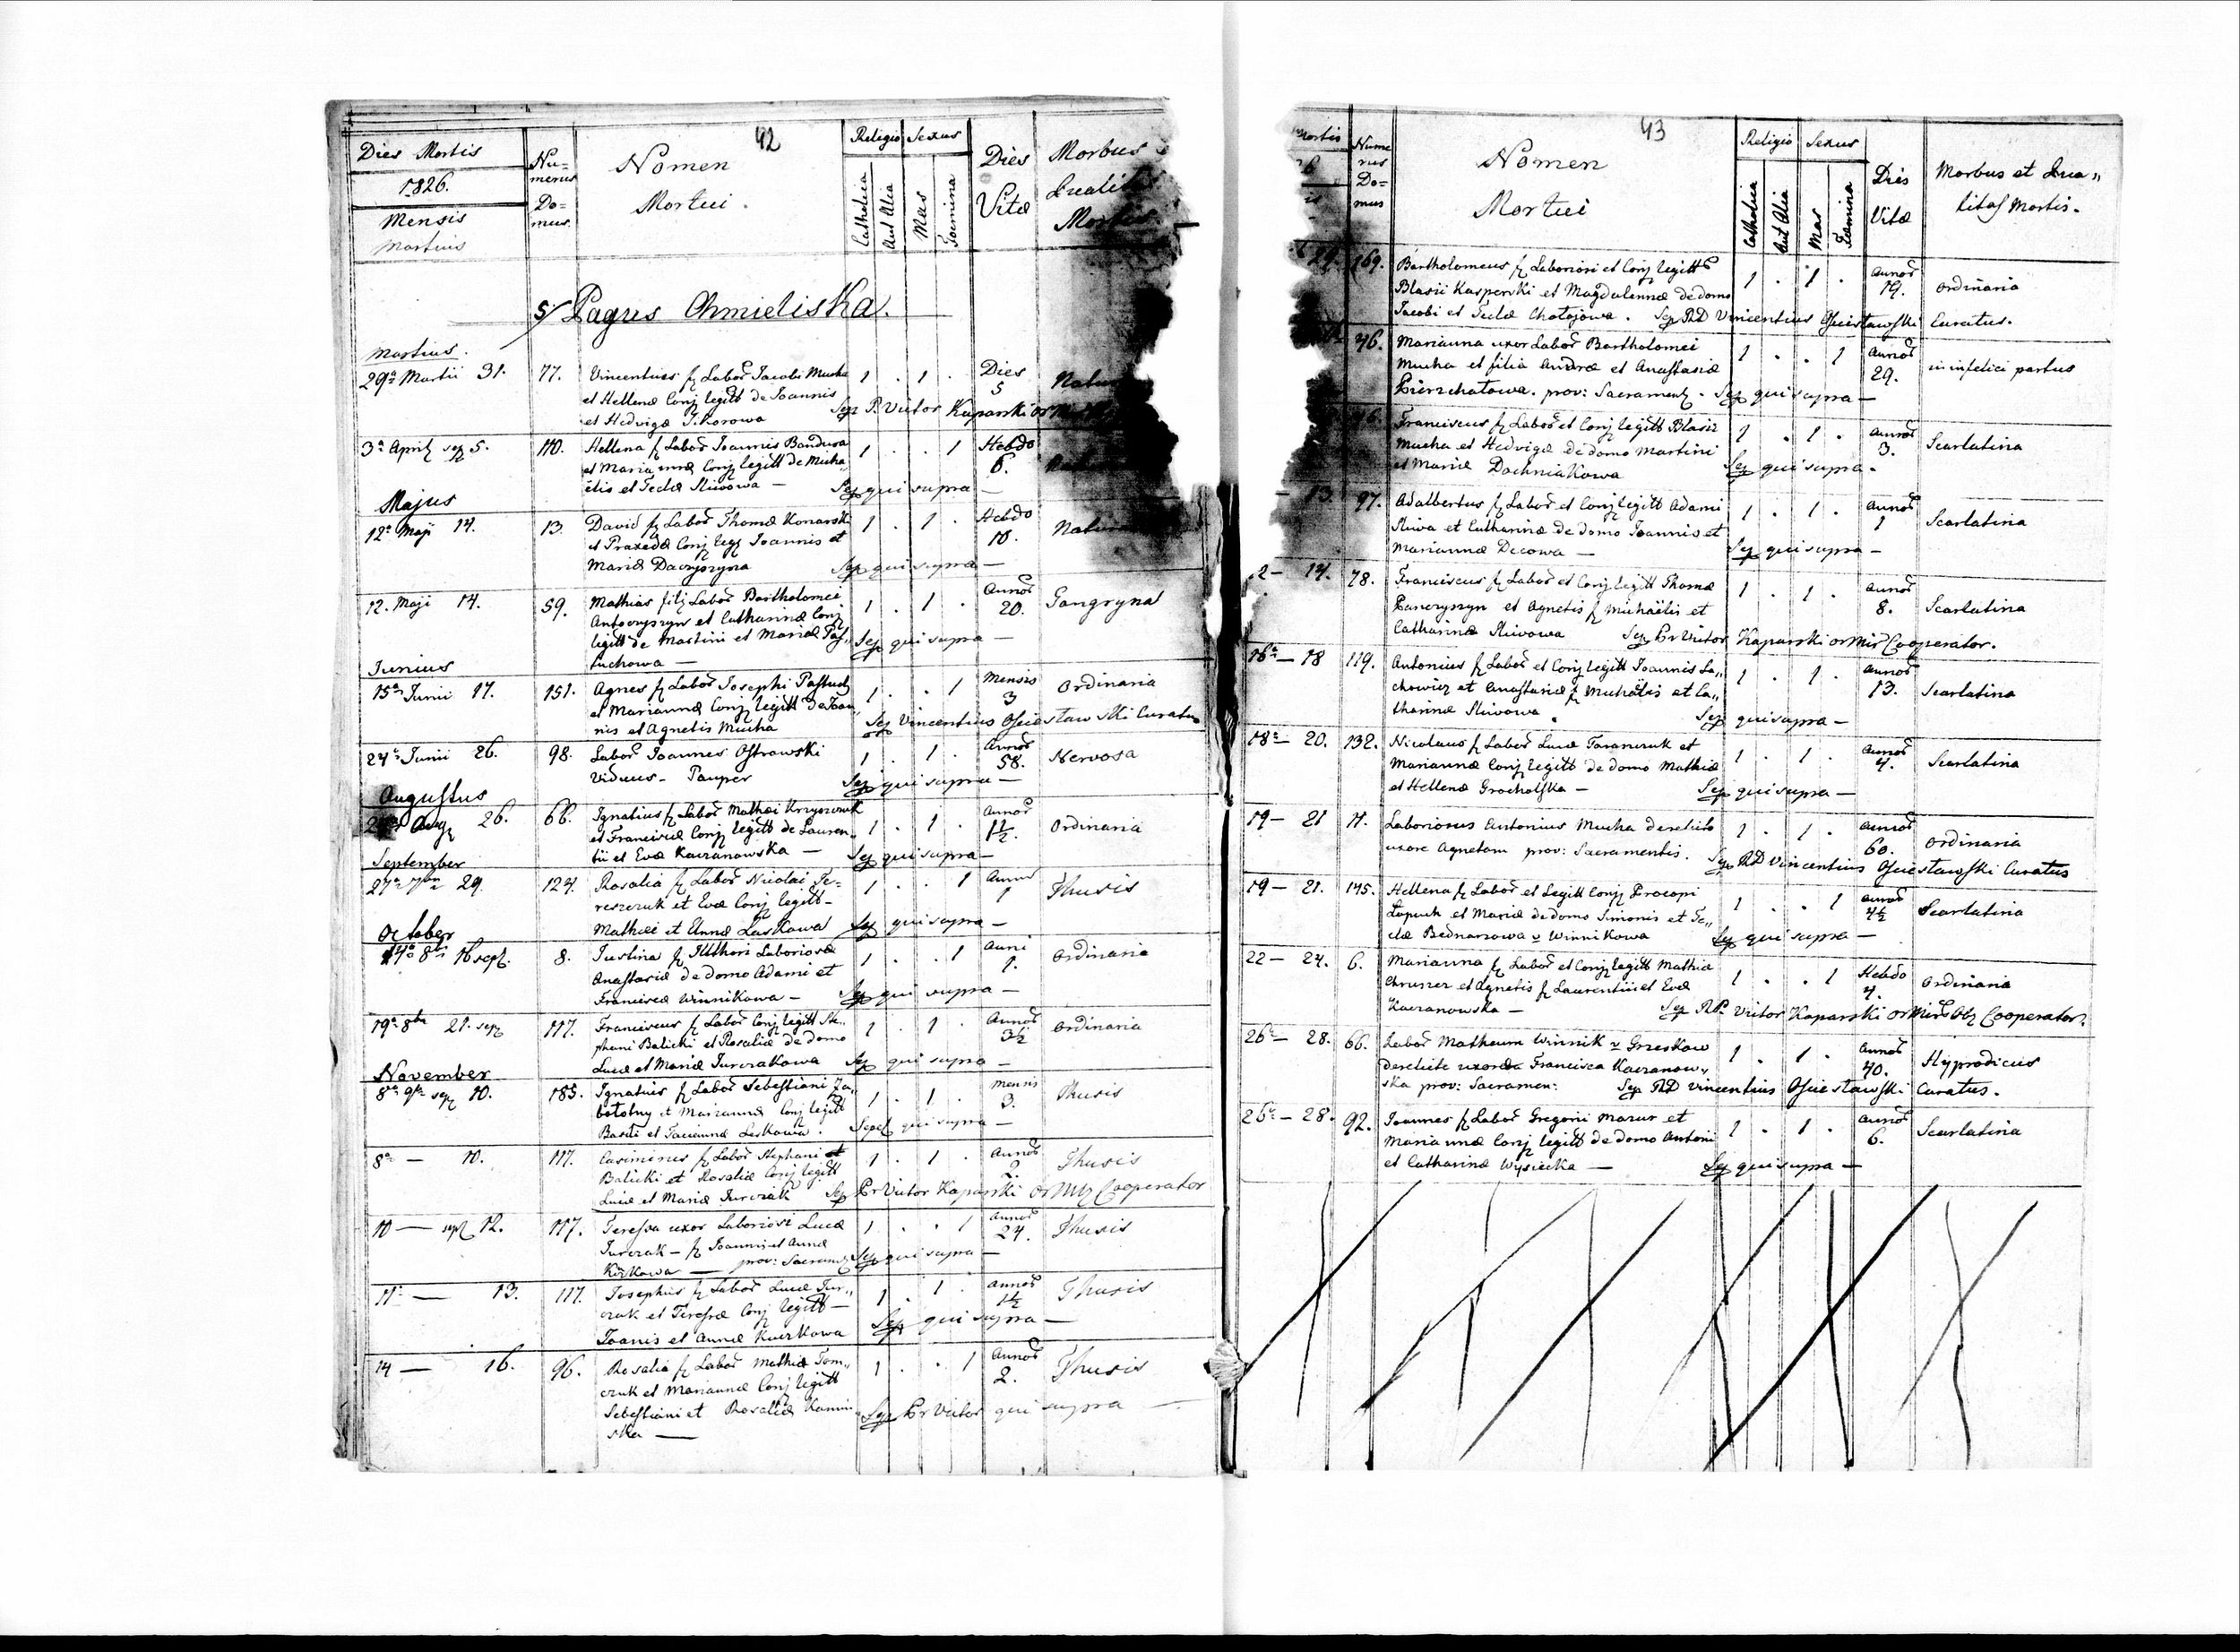 42
Dies Mortis
1826.
Mensis
Martius
Nu=
merus
Do=
mus
Nomen
Mortui.
Religio
Catholica
Aut Alia
Sexus
Mas
Foemina
Dies
Vitæ
Morbus
Mortis
5/ Pagus Chmieliska.
Martius.
29ª Martii 31. 77. Vincentius f. Labor Jacobi Mucha 1 . 1 . Dies 5
et Hellenæ Conj legitt de Joannis
et Hedvigæ Sikorowa Sep P. Victor Kaparski
3ª April sep 5. 110. Hellena f. Labor Joannis Bandura 1 . . 1 Hebdo 6.
et Mariannæ Conj legitt de Micha„
elis et Teclæ Sliwowa — Sep qui supra —
Majus
12ª Maji 14. 13. David f. Labor Thomæ Konarski 1 . 1 . Hebdo 10.
et Praxedæ Conj leg Joannis et
Mariæ Sep qui supra —
12. Maji 14. 59. Mathias filij Labor Bartholomei 1 . 1 . Annor 20. Gangryna
Antocryszyn et Catharinæ Conj
legitt de Martini et Mariæ Pas„ Sep qui supra —
tuchowa —
Junius
15ª Junii 17. 151. Agnes f. Labor Josephi Pastuch 1 . . 1 Mensis 3 Ordinaria
et Mariannæ Conj legitt de Joan„
nis et Agnetis Mucha Sep Vincentius Osiestawski Curatus
24ª Junii 26. 98. Labor Joannes Ostrowski 1 . 1 . Annor 58. Nervosa
Viduus - Pauper Sep qui supra —
Augustus
Aug 26. 66. Ignatius f. Labor Mathæi Krzyszczuk 1 . 1 . Annor 1½ Ordinaria
et Franciscæ Conj legitt de Lauren„
tii et Evæ Kaczanowska — Sep qui supra —
September
27ª 7br 29. 124. Rosalia f. Labor Nicolai Te= 1 . . 1 Annor 1 Thusis
reszczuk et Evæ Conj legitt —
Mathiæ et Annæ Laskowa Sep qui supra —
October
14ª 8br 16 sept. 8. Justina f. Illthori Laboriosæ 1 . . 1 Anni 1. Ordinaria
Anastasiæ de domo Adami et
Franciscæ Winnikowa — Sep qui supra —
19ª 8br 21. sep 117. Franciscus f. Labor Conj legitt Ste„ 1 . 1 . Annor 3½ Ordinaria
phani Balicki et Rosaliæ de domo
Lucæ et Mariæ Jurczakowa Sep qui supra —
November
8ª 9br sep 10. 185. Ignatius f. Labor Sebestiani Za„ 1 . 1 . Mensis 3. Thusis
botolny et Mariannæ Conj legitt
Basili et Tacianna Leskowa. Sepel qui supra —
8ª — 10. 117. Casimirus f. Labor Stephani et 1 . 1 . Annor 2. Thusis
Balicki et Rosaliæ Conj legitt
Lucæ et Mariæ Jurczak Sep Pr Victor Kaparski Cooperator
10 — sept 12. 117. Teressa uxor Laboriosi Lucæ 1 . . 1 Annor 24. Thusis
Jurczak — f. Joannis et Annæ
Kużkowa — prov: Sacrament Sep qui supra —
11ª — 13. 117. Josephus f. Labor Lucæ Jur„ 1 . 1 . Annor 1½ Thusis
czak et Teressæ Conj legitt —
Joanis et Annæ Kuczkowa Sep qui supra —
14 — 16. 96. Rosalia f. Labor Mathiæ Tom„ 1 . . 1 Annor 2. Thusis
czuk et Mariannæ Conj legitt
Sebestiani et Rosaliæ Kamin„ Sep Pr Victor qui supra —
ska —
43
Mortis
Nume
rus
Do=
mus
Nomen
Mortui
Religio
Catholica
Aut Alia
Sexus
Mas
Foemina
Dies
Vitæ
Morbus et Qua„
litas Mortis.
29. 169. Bartholomeus f. Laboriosi et Conj legitt 1 . 1 . Annor 19. Ordinaria
Blasii Kasperski et Magdalennæ de domo
Jacobi et Teclæ Chotojowa. Sep RD Vincentius Osiestawski Curatus.
76. Marianna uxor Labor Bartholomei 1 . . 1 Annor 29. in infelici partus
Mucha et filia Andreæ et Anastasiæ
Pierzchatowa. prov: Sacrament. Sep qui supra —
Franciscus f. Labor et Conj legitt Blasii 1 . 1 . Annor 3. Scarlatina
Mucha et Hedvigæ de domo Martini
et Mariæ Dachniakowa Sep qui supra —
13. 97. Adalbertus f. Labor et Conj legitt Adami 1 . 1 . Annor 1 Scarlatina
Sliwa et Catharinæ de domo Joannis et
Mariannæ Decowa — Sep qui supra —
2 — 14. 78. Franciscus f. Labor et Conj legitt Thomæ 1 . 1 . Annor 8. Scarlatina
Pancryszyn et Agnetis f. Michaëlis et
Catharinæ Sliwowa Sep Pr Victor Kaparski Cooperator.
16ª — 18 119. Antonius f. Labor et Conj legitt Joannis La„ 1 . 1 . Annor 13. Scarlatina
chowicz et Anastasiæ f. Michaëlis et Ca„
tharinæ Sliwowa. Sep qui supra —
18ª — 20. 132. Nicolaus f. Labor Lucæ Taranczuk et 1 . 1 . Annor 4. Scarlatina
Mariannæ Conj legitt de domo Mathiæ
et Hellenæ Grocholska — Sep qui supra —
19 — 21 11. Laboriosus Antonius Mucha derelicto 1 . 1 . Annor 60. Ordinaria
uxore Agnetam prov: Sacramentis. Sep RD Vincentius Osiestawski Curatus
19 — 21. 145. Hellena f. Labor et Legitt Conj Procopi 1 . . 1 Annor 4½ Scarlatina
Lopuch et Mariæ de domo Simonis et Te„
clæ Bednarzowa v Winnikowa Sep qui supra —
22 — 24. 6. Marianna f. Labor et Conj legitt Mathiæ 1 . . 1 Hebdo 4. Ordinaria
et Agnetis f. Laurentii et Evæ
Kaczanowska — Sep RP. Victor Kaparski Cooperator.
26ª — 28. 66. Labor Matheum Winnik v Grzeskow 1 . 1 . Annor 40. Hyprodicus
derelicte uxorem Francisca Kaczanow„
ska prov: Sacramen: Sep RD Vincentius Osiestawski Curatus.
26ª — 28. 92. Joannes f. Labor Gregorii Mazur et 1 . 1 . Annor 6. Scarlatina
Mariannæ Conj legitt de domo Antonii
et Catharinæ Wysiecka — Sep qui supra —